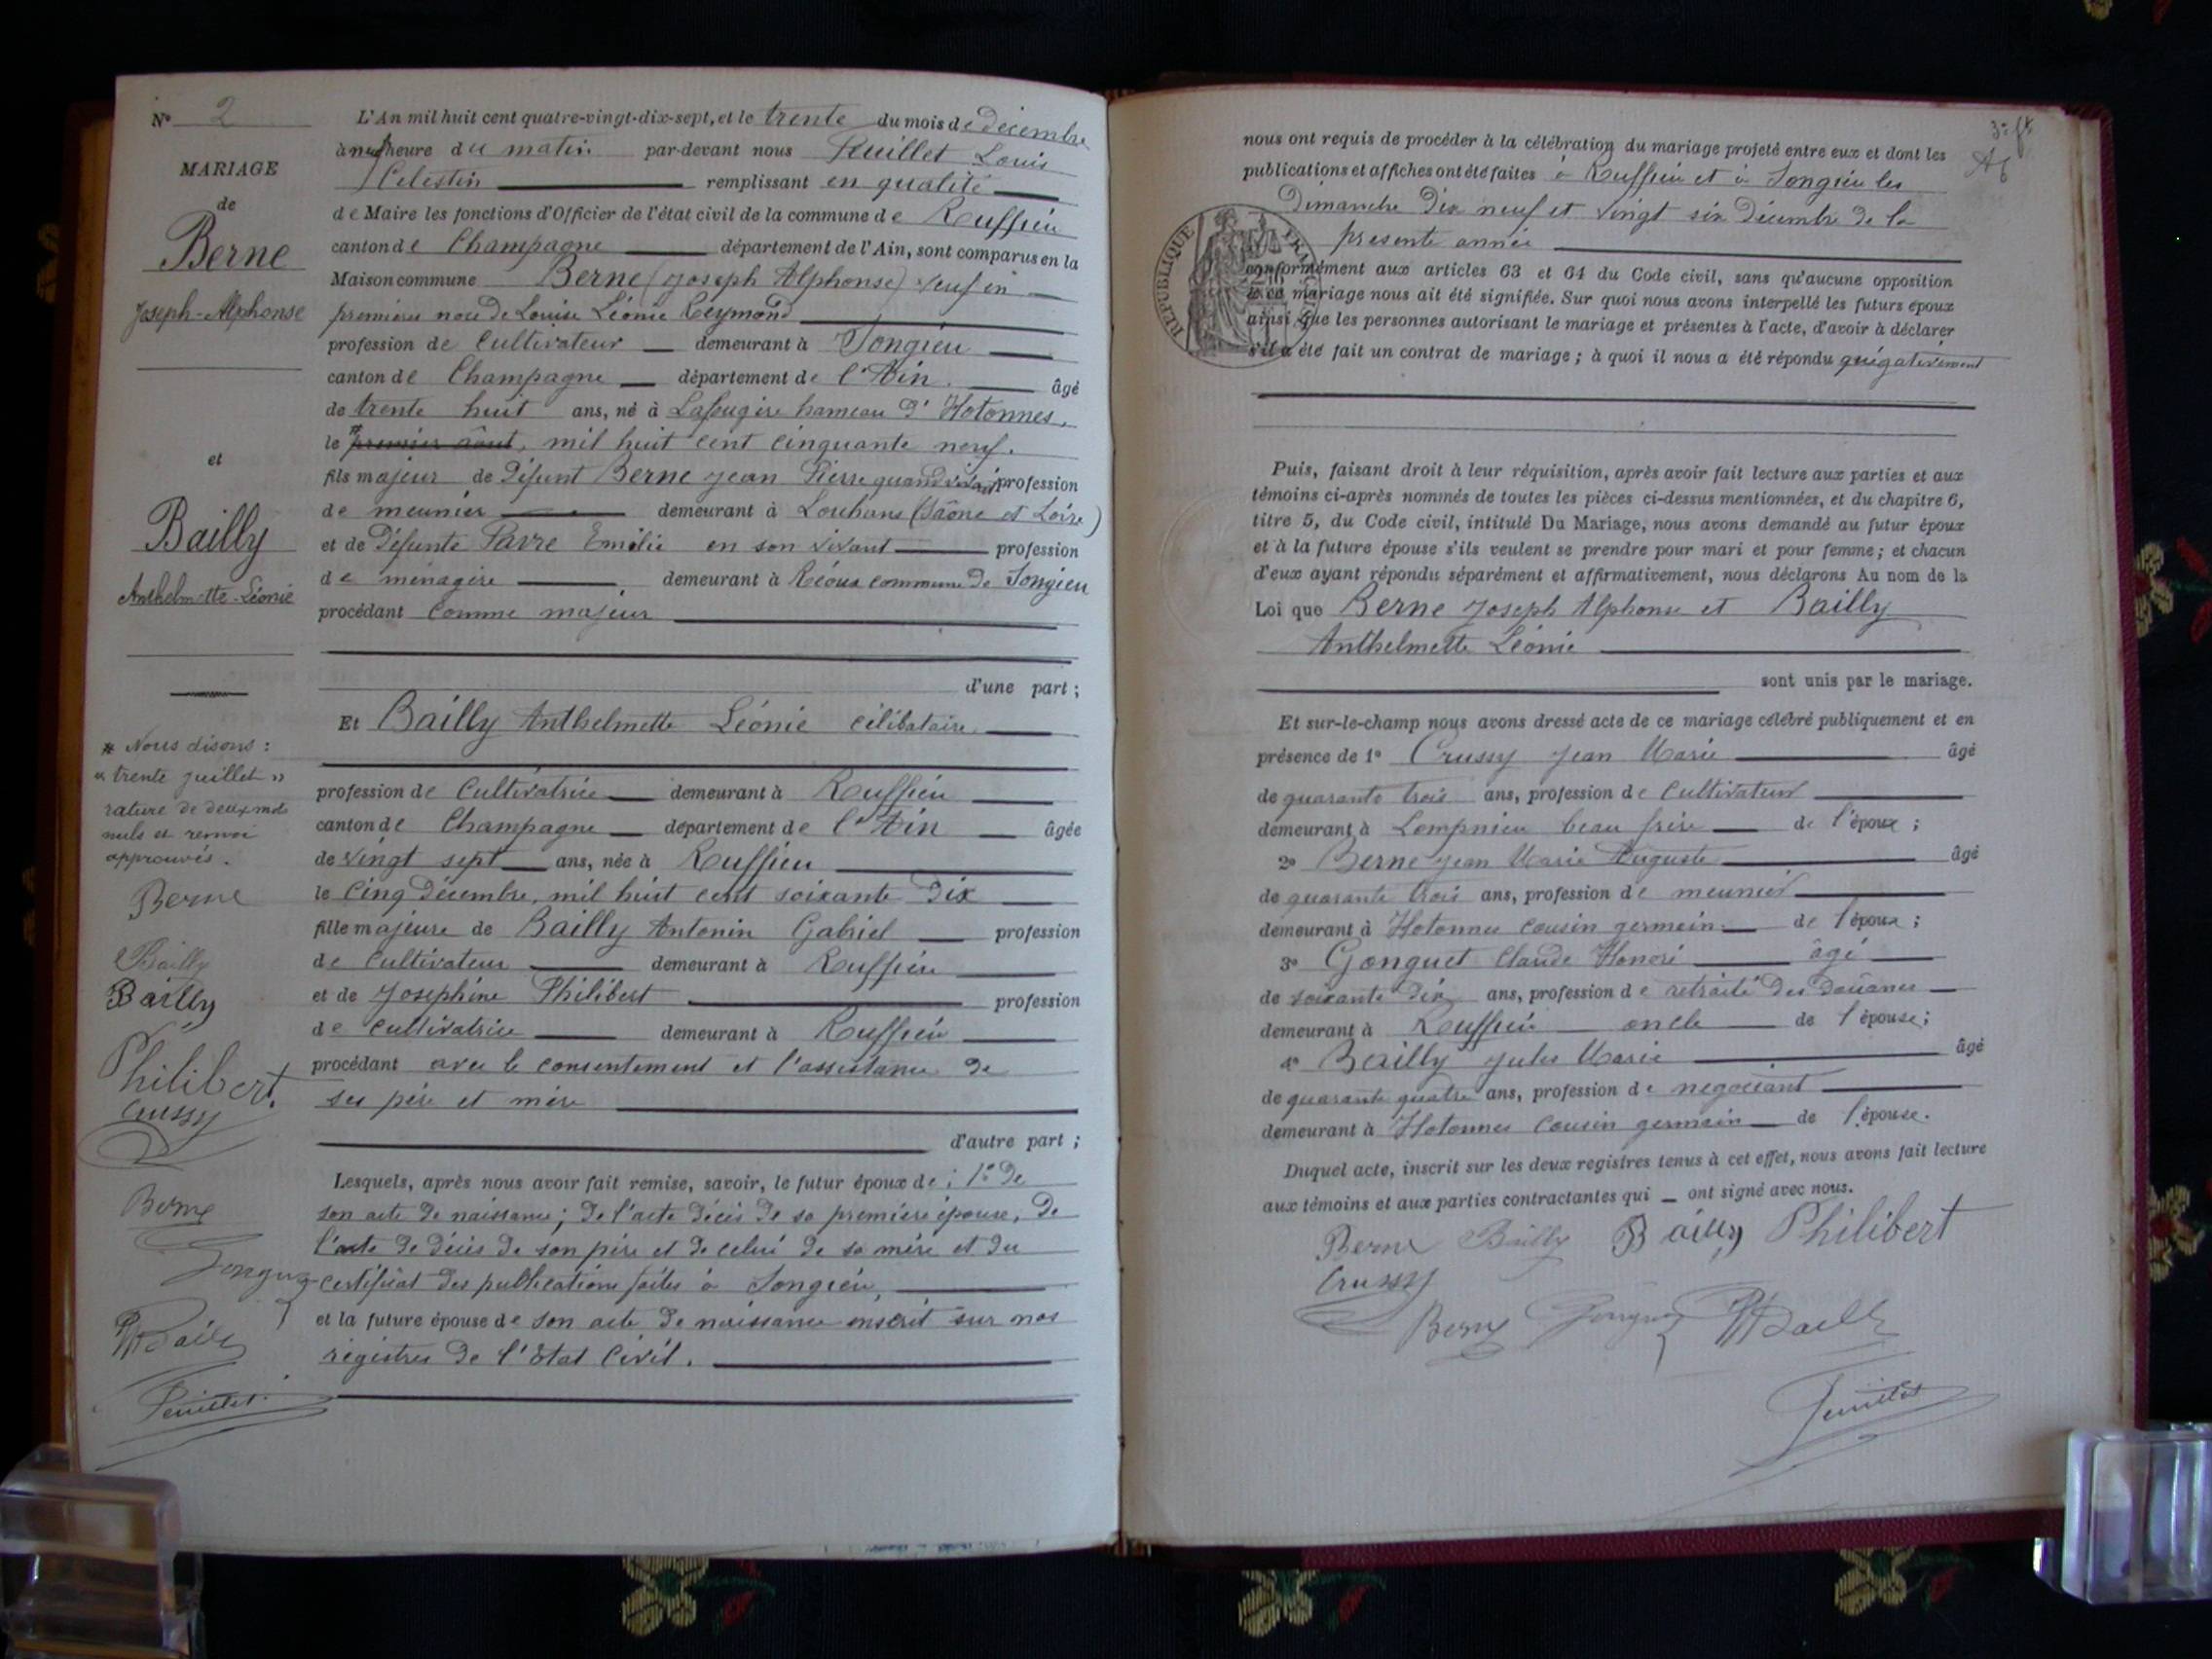 N° 2
MARIAGE
de
Berne
Joseph-Alphonse
et
Bailly
Anthelmette-Léonie
* Nous disons :
« trente juillet »
rature de deux mots
nuls et renvoi
approuvés.
Berne
Bailly
Bailly
Philibert
Crussy
Berne
L'An mil huit cent quatre-vingt-dix-sept, et le trente du mois de décembre
à neuf heure du matin par-devant nous Louis
Célestin remplissant en qualité
de Maire les fonctions d'Officier de l'état civil de la commune de Ruffieu
canton de Champagne département de l'Ain, sont comparus en la
Maison commune Berne (Joseph Alphonse) veuf en
premières noces de Louise Léonie Reymond
profession de Cultivateur demeurant à Songieu
canton de Champagne département de l'Ain. âgé
de trente huit ans, né à Lafougère hameau d'Hotonnes,
le * premier août, mil huit cent cinquante neuf.
fils majeur de Défunt Berne Jean Pierre quand vivait profession
de meunier demeurant à Louhans (Saône et Loire)
et de Défunte Favre Emélie en son vivant profession
de ménagère demeurant à commune de Songieu
procédant comme majeur
d'une part ;
Et Bailly Anthelmette Léonie célibataire
profession de Cultivatrice demeurant à Ruffieu
canton de Champagne département de l'Ain âgée
de vingt sept ans, née à Ruffieu
le cinq Décembre, mil huit cent soixante dix
fille majeure de Bailly Antonin Gabriel profession
de Cultivateur demeurant à Ruffieu
et de Joséphine Philibert profession
de cultivatrice demeurant à Ruffieu
procédant avec le consentement et l'assistance de
ses père et mère
d'autre part ;
Lesquels, après nous avoir fait remise, savoir, le futur époux de : 1° De
son acte de naissance ; de l'acte décès de sa première épouse, de
l'acte de décès de son père et de celui de sa mère et du
certificat des publications faites à Songieu,
et la future épouse de son acte de naissance inscrit sur nos
régistres de l'Etat Civil.
nous ont requis de procéder à la célébration du mariage projeté entre eux et dont les
publications et affiches ont été faites à Ruffieu et à Songieu les
Dimanche Dix neuf et vingt six Décembre de la
présente année
RÉPUBLIQUE FRANÇAISE
conformément aux articles 63 et 64 du Code civil, sans qu'aucune opposition
à ce mariage nous ait été signifiée. Sur quoi nous avons interpellé les futurs époux
ainsi que les personnes autorisant le mariage et présentes à l'acte, d'avoir à déclarer
s'il a été fait un contrat de mariage ; à quoi il nous a été répondu négativement
Puis, faisant droit à leur réquisition, après avoir fait lecture aux parties et aux
témoins ci-après nommés de toutes les pièces ci-dessus mentionnées, et du chapitre 6,
titre 5, du Code civil, intitulé Du Mariage, nous avons demandé au futur époux
et à la future épouse s'ils veulent se prendre pour mari et pour femme ; et chacun
d'eux ayant répondu séparément et affirmativement, nous déclarons Au nom de la
Loi que Berne Joseph Alphonse et Bailly
Anthelmette Léonie
sont unis par le mariage.
Et sur-le-champ nous avons dressé acte de ce mariage célébré publiquement et en
présence de 1° Crussy Jean Marie âgé
de quarante trois ans, profession de cultivateur
demeurant à Lompnieu beau frère de l'époux ;
2° Berne Jean Marie Auguste âgé
de quarante trois ans, profession de meunier
demeurant à Hotonnes cousin germain de l'époux ;
3° Gonguet Claude Honoré âgé
de soixante dix ans, profession de retraité des Douanes
demeurant à Ruffieu oncle de l'épouse ;
4° Bailly Jules Marie âgé
de quarante quatre ans, profession de négociant
demeurant à Hotonnes cousin germain de l'épouse.
Duquel acte, inscrit sur les deux registres tenus à cet effet, nous avons fait lecture
aux témoins et aux parties contractantes qui ont signé avec nous.
Berne Bailly Bailly Philibert
Crussy
Berne